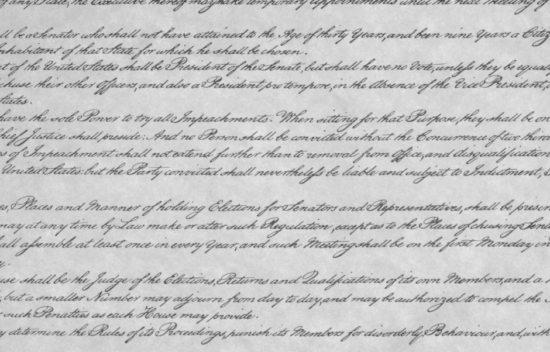 of any State, the Executive thereof may make temporary Appointments until the next Meeting of
ll be a Senator who shall not have attained to the Age of thirty Years, and been nine Years a Citiz
nhabitant of that State for which he shall be chosen.
t of the United States shall be President of the Senate, but shall have no Vote, unless they be equal
chuse their other Officers, and also a President pro tempore, in the Absence of the Vice President,
States.
have the sole Power to try all Impeachments. When sitting for that Purpose, they shall be on
hief Justice shall preside: And no Person shall be convicted without the Concurrence of two thir
s of Impeachment shall not extend further than to removal from Office, and disqualification
United States: but the Party convicted shall nevertheless be liable and subject to Indictment,
es, Places and Manner of holding Elections for Senators and Representatives, shall be prescr
may at any time by Law make or alter such Regulation, except as to the Places of chusing Sena
all assemble at least once in every Year, and such Meeting shall be on the first Monday in
use shall be the Judge of the Elections, Returns and Qualifications of its own Members, and a
, but a smaller Number may adjourn from day to day, and may be authorized to compel the
r such Penalties as each House may provide.
y determine the Rules of its Proceedings, punish its Members for disorderly Behaviour, and, with